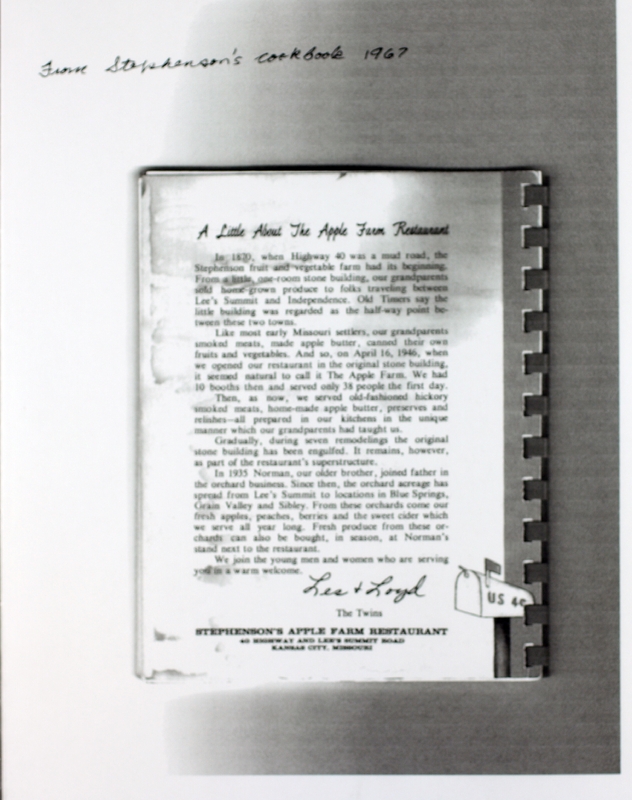 From Stephenson's cookbook 1967
A Little About The Apple Farm Restaurant
In 1870, when Highway 40 was a mud road, the
Stephenson fruit and vegetable farm had its beginning.
From a little, one-room stone building, our grandparents
sold home-grown produce to folks traveling between
Lee's Summit and Independence. Old Timers say the
little building was regarded as the half-way point be-
tween these two towns.
Like most early Missouri settlers, our grandparents
smoked meats, made apple butter, canned their own
fruits and vegetables. And so, on April 16, 1946, when
we opened our restaurant in the original stone building,
it seemed natural to call it The Apple Farm. We had
10 booths then and served only 38 people the first day.
Then, as now, we served old-fashioned hickory
smoked meats, home-made apple butter, preserves and
relishes—all prepared in our kitchens in the unique
manner which our grandparents had taught us.
Gradually, during seven remodelings the original
stone building has been engulfed. It remains, however,
as part of the restaurant's superstructure.
In 1935 Norman, our older brother, joined father in
the orchard business. Since then, the orchard acreage has
spread from Lee's Summit to locations in Blue Springs,
Grain Valley and Sibley. From these orchards come our
fresh apples, peaches, berries and the sweet cider which
we serve all year long. Fresh produce from these or-
chards can also be bought, in season, at Norman's
stand next to the restaurant.
We join the young men and women who are serving
you in a warm welcome.
Les & Loyd
The Twins
US 40
STEPHENSON'S APPLE FARM RESTAURANT
40 HIGHWAY AND LEE'S SUMMIT ROAD
KANSAS CITY, MISSOURI